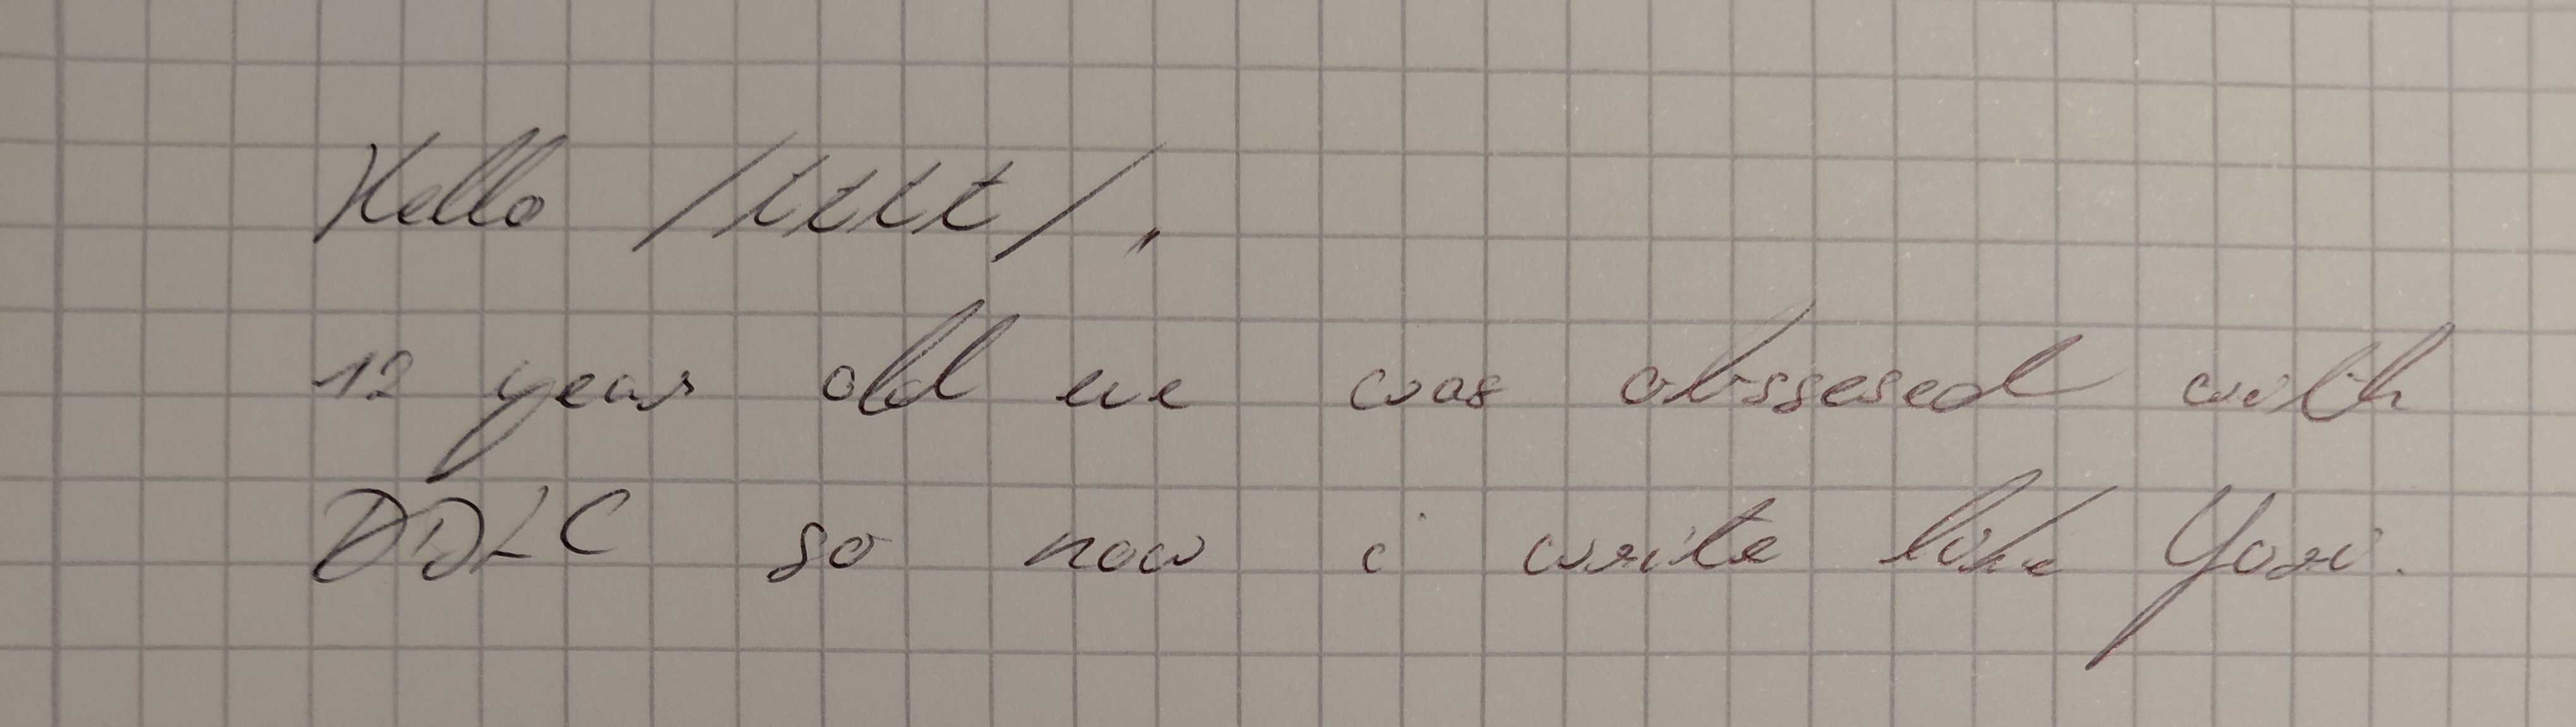 Hello /tttt/,
12 year old me was obssesed with
DDLC so now i write like Yuri.